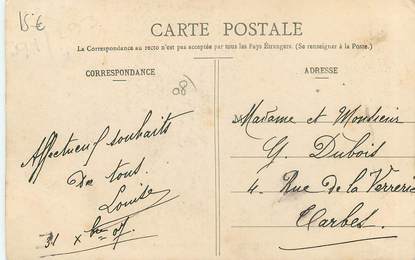 15€
CARTE POSTALE
La Correspondance au recto n'est pas acceptée par tous les Pays Étrangers. (Se renseigner à la Poste.)
CORRESPONDANCE
ADRESSE
Affectueux souhaits
De tous.
Louise
31 Xbre 07.
Madame et Monsieur
G. Dubois
4. Rue de la Verrerie
Tarbes.